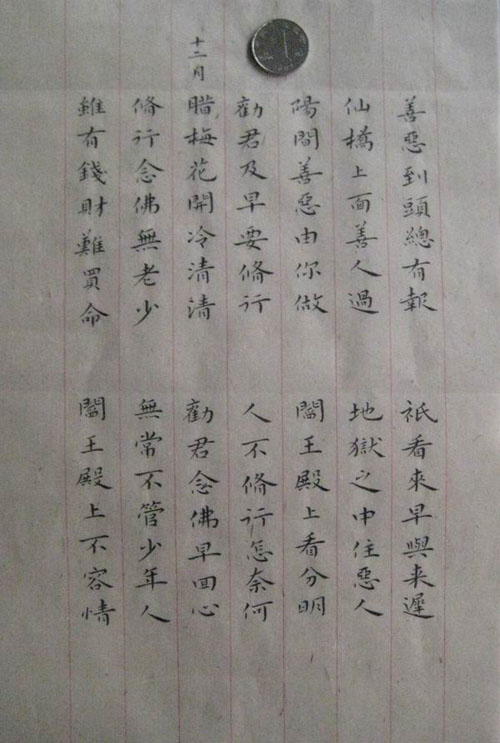 善惡到頭總有報 祇看來早與來遲
仙橋上面善人過 地獄之中住惡人
陽間善惡由你做 閻王殿上看分明
勸君及早要脩行 人不脩行怎奈何
十二月
腊梅花開冷清清 勸君念佛早回心
脩行念佛無老少 無常不管少年人
雖有錢財難買命 閻王殿上不容情